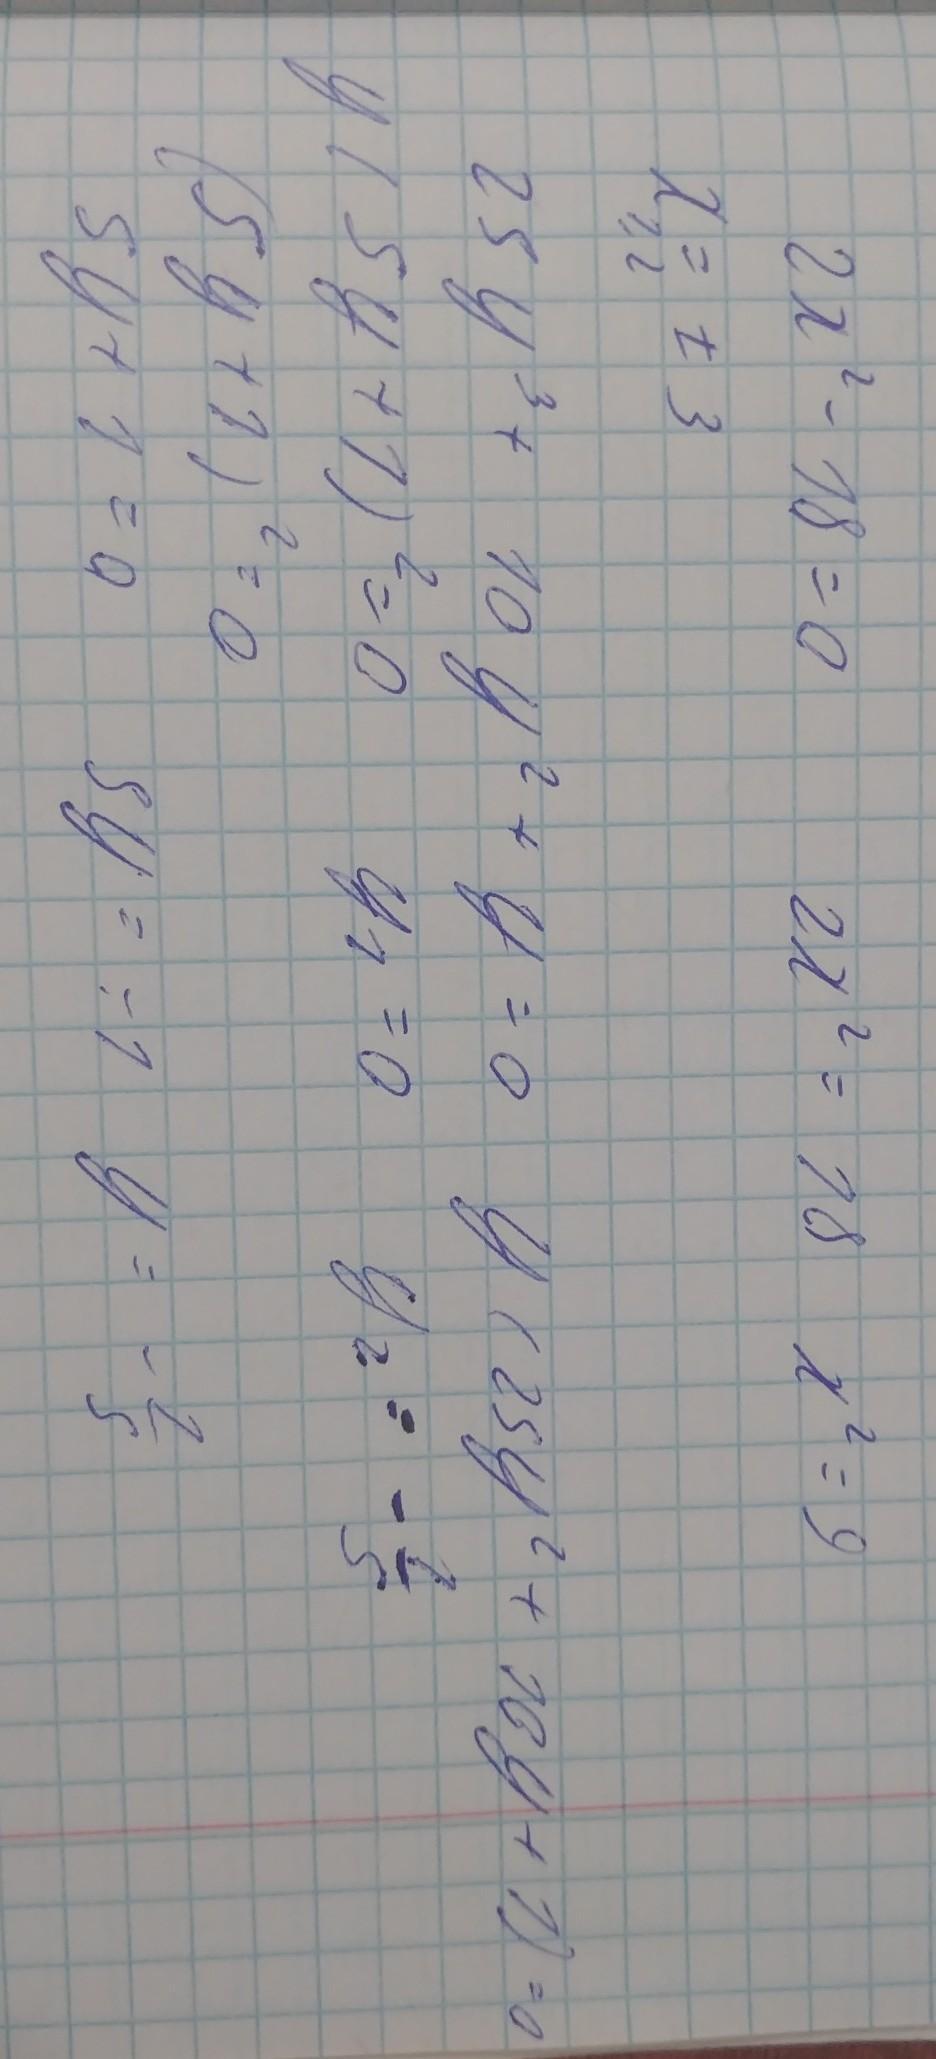 2x² - 18 = 0 2x² = 18 x² = 9
x₁,₂ = ± 3
25y³ + 10y² + y = 0 y(25y² + 10y + 1) = 0
y(5y + 1)² = 0 y₁ = 0 y₂ = - 1/5
(5y + 1)² = 0
5y + 1 = 0 5y = -1 y = - 1/5